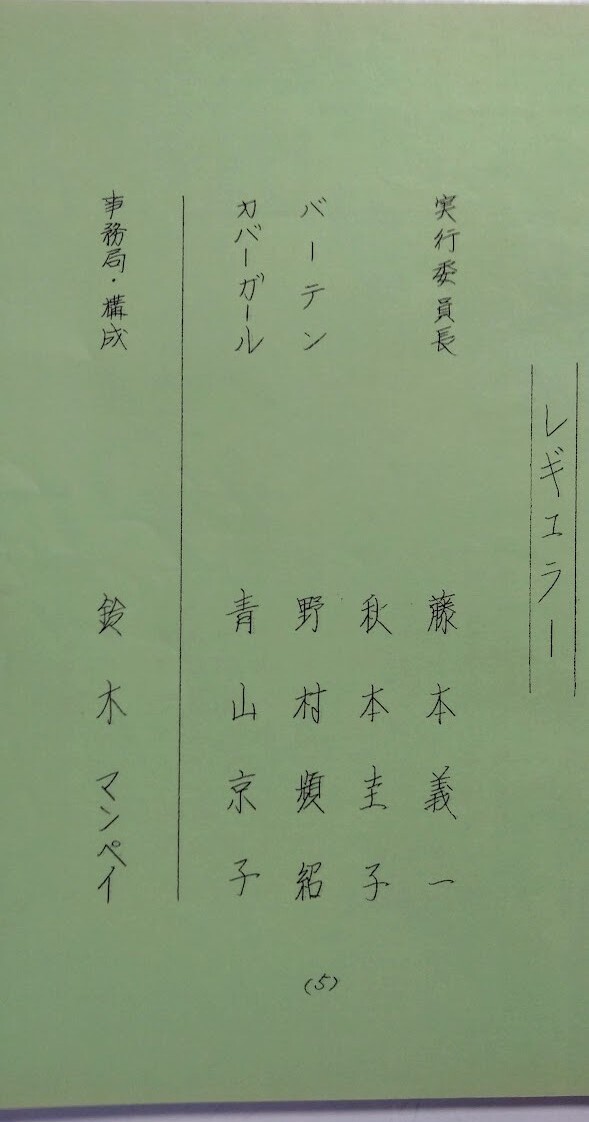 レギュラー
実行委員長 藤本義一
秋本圭子
バーテン 野村頻紹
カバーガール 青山京子
事務局・構成 鈴木マンペイ
(5)